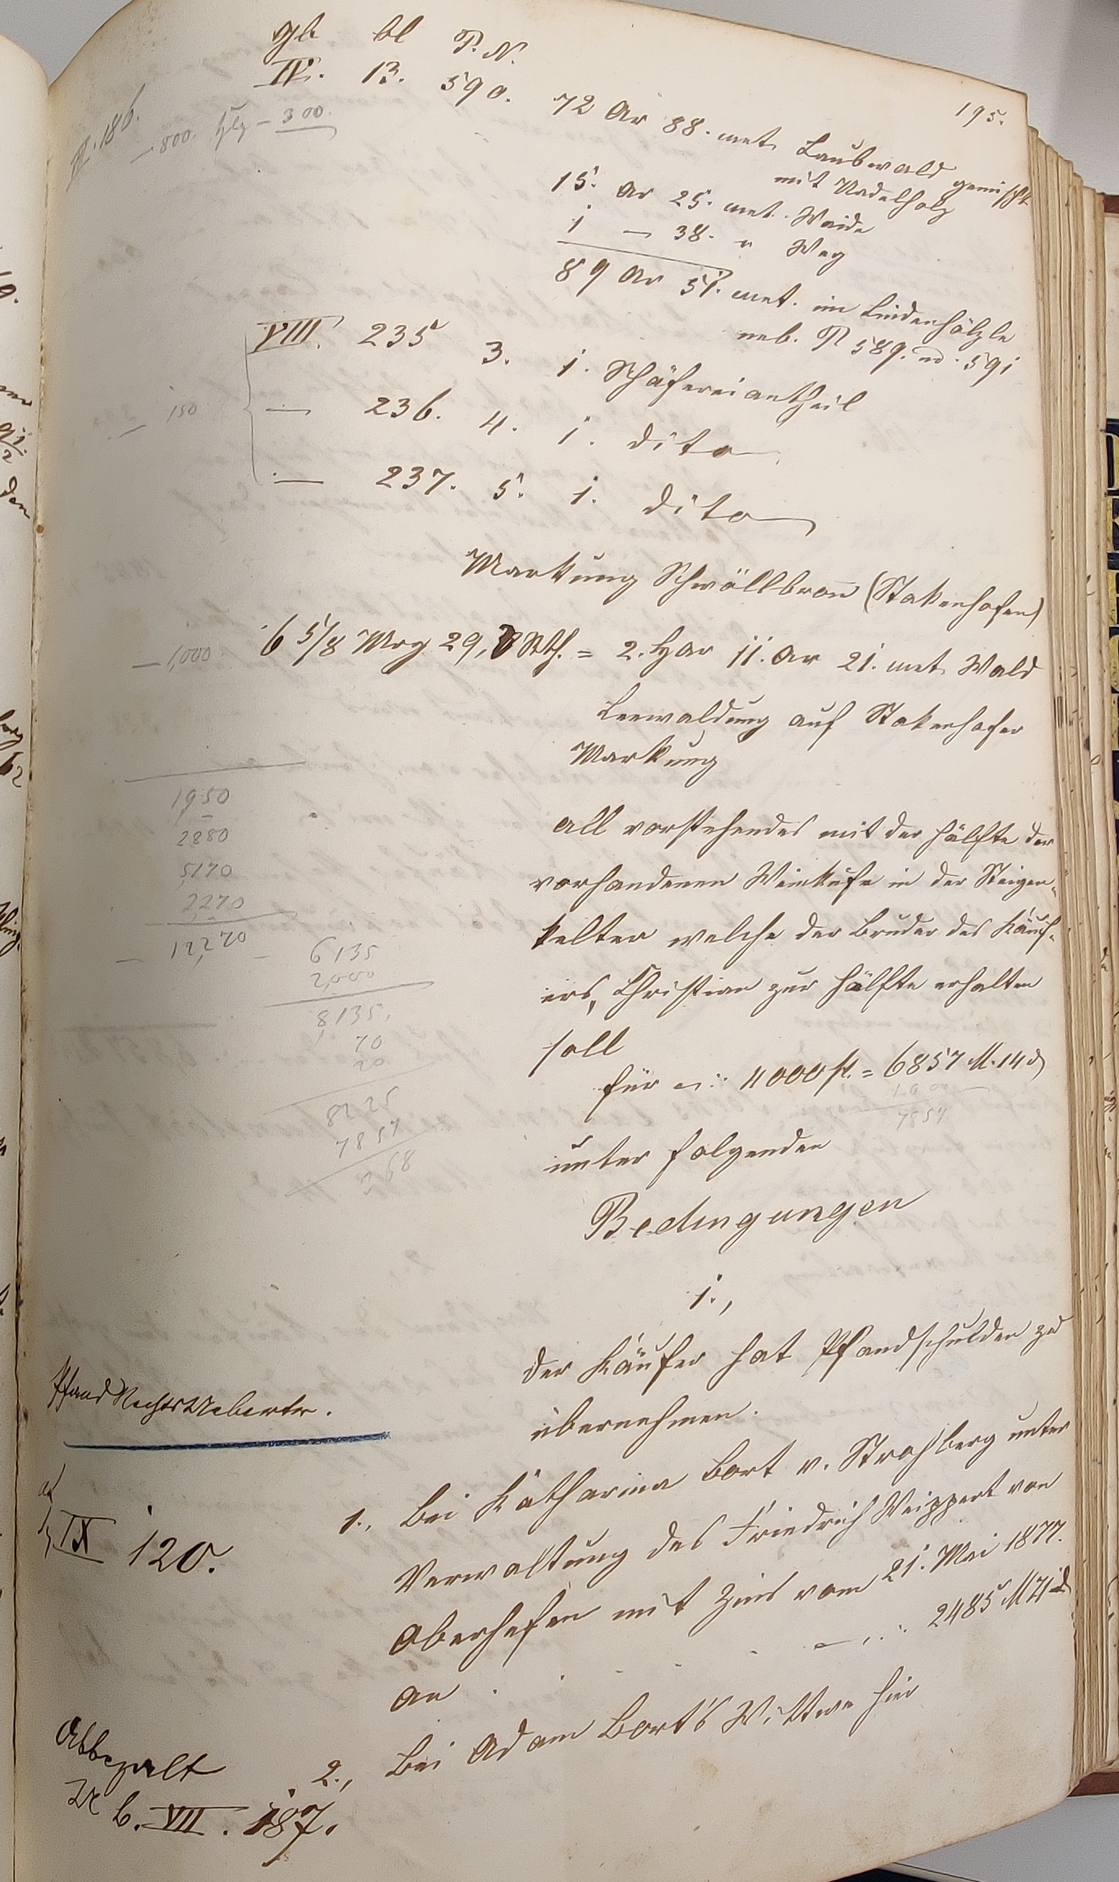 195.
Gb. bl P. N.
IV. 13. 590. 72 Ar 88. met. Laubwald gemischt
mit Nadelholz
II. 186.
— 800. Hlz — 300.
15. Ar 25. met. Waide
1 — 38. " Weg
89 Ar 51. met. im Lindenhölzle
neb. P 589. u. 591
VIII. 235 3. 1. Schäfereiantheil
— 150
— 236. 4. 1. dito
— 237. 5. 1. dito
Markung Schwöllbronn (Stakenhofen)
— 1,000 6 5/8 Mrg 29,8 Rth. = 2. Har 11. Ar 21. met. Wald
Leewaldung auf Stakenhofer
Markung
1950
2880
5170
2270
— 12,270 — 6135
2,000
8135.
70
20
8225
7857
368
all vorstehendes mit der Hälfte der
vorhandenen Weinkufe in der Steigen-
kelter welche der Bruder des Käuf-
ers, Christian zur Hälfte erhalten
soll
für 4000 fl. = 6857 M. 14 d
1000
7857
unter folgenden
Bedingungen
1.,
Der Käufer hat Pfandschulden zu
übernehmen.
Pfand Rechts Uebertr.
IX 120.
1., Bei Katharina Bort v. Strohberg unter
Verwaltung des Friedrich Weippert von
Oberhofen mit Zins vom 21. Mai 1877.
an . . . 2485 M 71 d
Abbezalt
b. VII. 187.
2., Bei Adam Bort's Wittwe hier